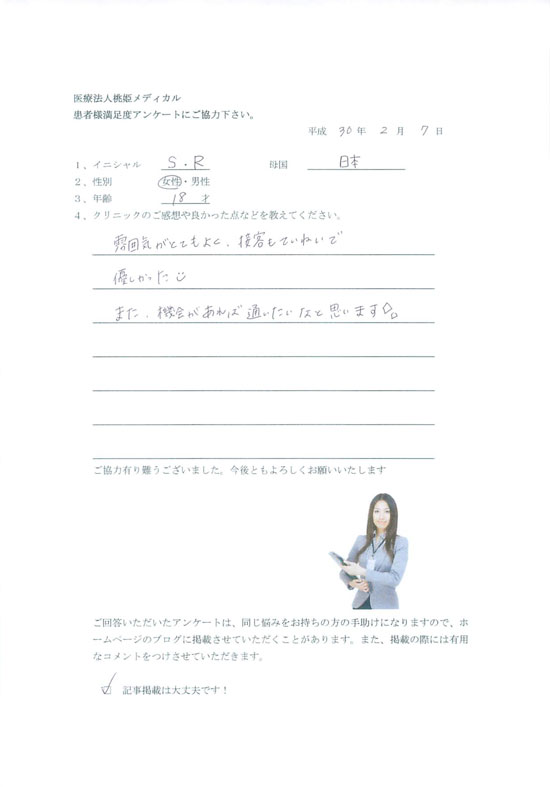 医療法人桃姫メディカル
患者様満足度アンケートにご協力下さい。
平成 30 年 2 月 7 日
1、イニシャル S・R 母国 日本
2、性別 女性・男性
3、年齢 18 才
4、クリニックのご感想や良かった点などを教えてください。
雰囲気がとてもよく、接客もていねいで
優しかった
また、機会があれば通いたいなと思います
ご協力有り難うございました。今後ともよろしくお願いいたします
ご回答いただいたアンケートは、同じ悩みをお持ちの方の手助けになりますので、ホ
ームページのブログに掲載させていただくことがあります。また、掲載の際には有用
なコメントをつけさせていただきます。
記事掲載は大丈夫です！